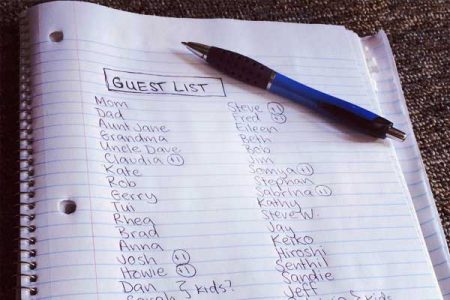 GUEST LIST
Mom
Dad
Aunt Jane
Grandma
Uncle Dave
Claudia +1
Kate
Rob
Gerry
Tui
Rhea
Brad
Anna
Josh +1
Howie +1
Dan } kids?
Sarah
Steve +1
Fred +1
Eileen
Beth
Bob
Jim
Somya +1
Stephan
Sabrina +1
Kathy
Steve W.
Jay
Keiko
Hiroshi
Senthil
Sandie
Jeff
} kids?